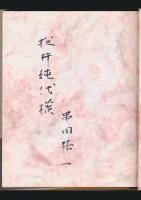 松井純代様
串田孫一